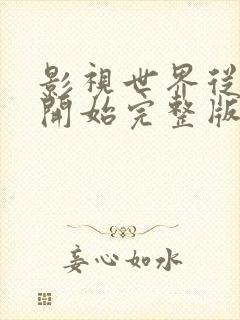 影視世界從
開始完整版
妄心如水